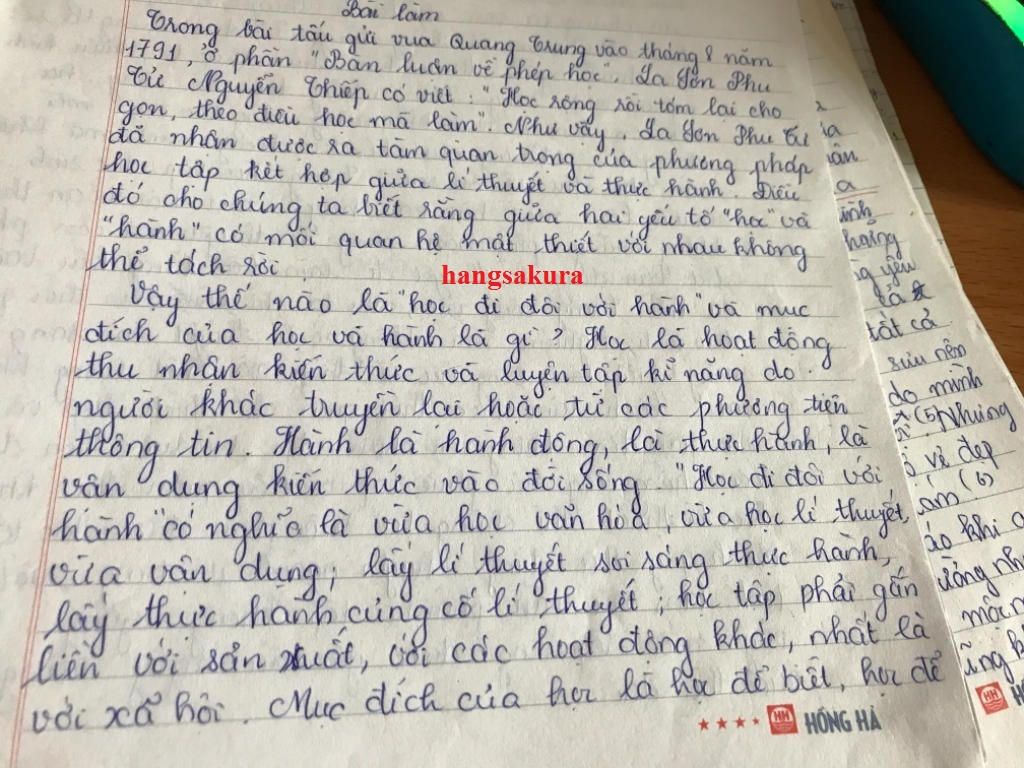 Bài làm
Trong bài tấu gửi vua Quang Trung vào tháng 8 năm
1791, ở phần "Bàn luận về phép học", La Sơn Phu
Tử Nguyễn Thiếp có viết: "Học rộng rồi tóm lại cho
gọn, theo điều học mà làm". Như vậy, La Sơn Phu Tử
đã nhận được ra tầm quan trọng của phương pháp
học tập kết hợp giữa lí thuyết và thực hành. Điều
đó cho chúng ta biết rằng giữa hai yếu tố "học" và
"hành" có mối quan hệ mật thiết với nhau không
thể tách rời
hangsakura
Vậy thế nào là "học đi đôi với hành" và mục
đích của học và hành là gì? Học là hoạt động
thu nhận kiến thức và luyện tập kĩ năng do
người khác truyền lại hoặc từ các phương tiện
thông tin. Hành là hành động, là thực hành, là
vận dụng kiến thức vào đời sống. "Học đi đôi với
hành" có nghĩa là vừa học văn hóa, vừa học lí thuyết,
vừa vận dụng; lấy lí thuyết soi sáng thực hành,
lấy thực hành củng cố lí thuyết; học tập phải gắn
liền với sản xuất, với các hoạt động khác, nhất là
với xã hội. Mục đích của học là học để biết, học để
HH HỒNG HÀ
hoảng
yêu
tất cả
sưu nên
do mình
(5) Nhưng
vẻ đẹp
(6)
khi
HH